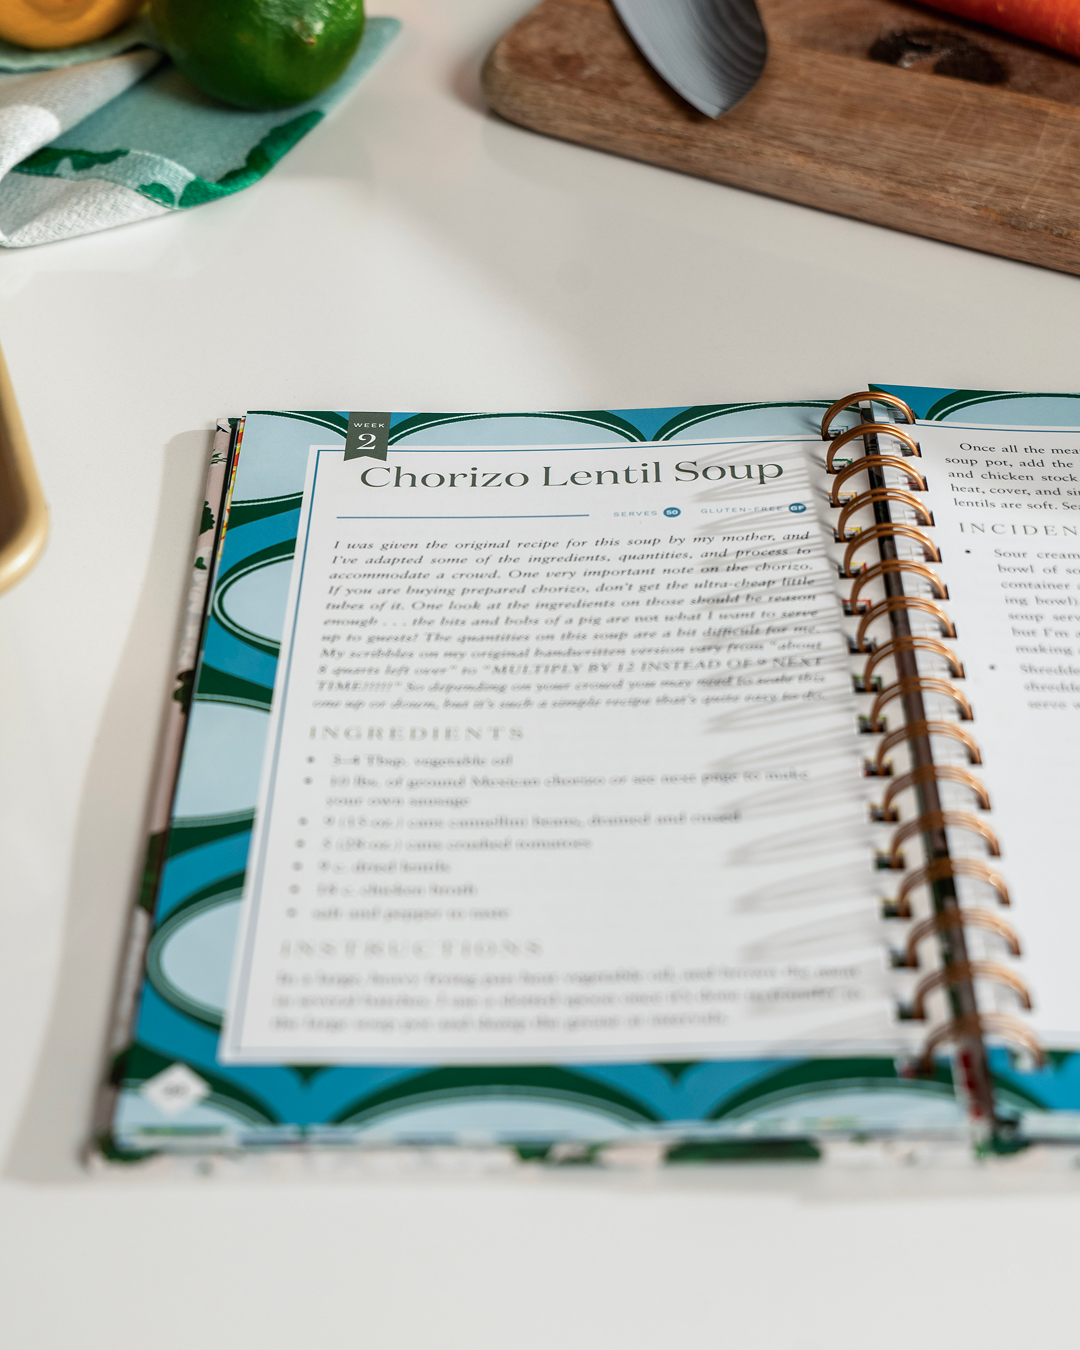 WEEK
2
Chorizo Lentil Soup
SERVES 50 GLUTEN-FREE GF
I was given the original recipe for this soup by my mother, and
I've adapted some of the ingredients, quantities, and process to
accommodate a crowd. One very important note on the chorizo.
If you are buying prepared chorizo, don't get the ultra-cheap little
tubes of it. One look at the ingredients on those should be reason
enough . . . the bits and bobs of a pig are not what I want to serve
up to guests! The quantities on this soup are a bit difficult for me.
My scribbles on my original handwritten version vary from "about
8 quarts left over" to "MULTIPLY BY 12 INSTEAD OF NEXT
TIME!!!!!" So depending on your crowd you may need to scale this
one up or down, but it's such a simple recipe that's quite easy to do.
INGREDIENTS
• 3–4 Tbsp. vegetable oil
• 10 lbs. of ground Mexican chorizo or see next page to make
your own sausage
• 9 (15 oz.) cans cannellini beans, drained and rinsed
• 5 (28 oz.) cans crushed tomatoes
• 9 c. dried lentils
• 18 c. chicken broth
• salt and pepper to taste
INSTRUCTIONS
In a large, heavy frying pan heat vegetable oil, and brown the meat
in several batches. I use a slotted spoon once it's done to transfer to
the large soup pot and
Once all the mea
soup pot, add the
and chicken stock
heat, cover, and si
lentils are soft. Sea
INCIDEN
• Sour cream
bowl of so
container
ing bowl)
soup serv
but I'm a
making
• Shredde
shredde
serve w